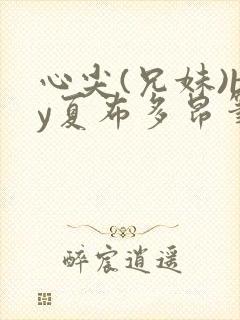 心尖(兄妹)b
y夏布多昂
醉宸逍遥